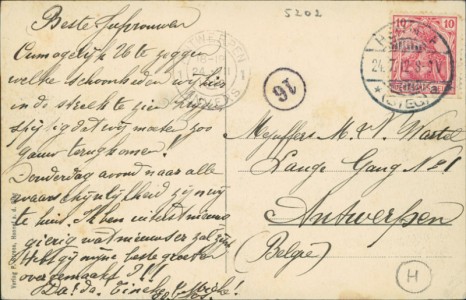 5202
Beste Juffrouwen
Onmogelijk U te zeggen
welke schoonheden wij hier
in de streek te zien krijgen
spijtig dat wij moeten zoo
gauw terugkomen!
Donderdag avond naar alle
waarschijnlijkheid zijn wij
te huis. Ik ben uiterst nieuws
gierig wat nieuws er zal zijn
Hebt gij mijne beste groeten
over gemaakt?!!
Da! da.
10 10
24.7.
(STEG.)
1 1
16
Mejuffers M. & J.
Lange Gang No 1
Antwerpen
(Belgie)
H